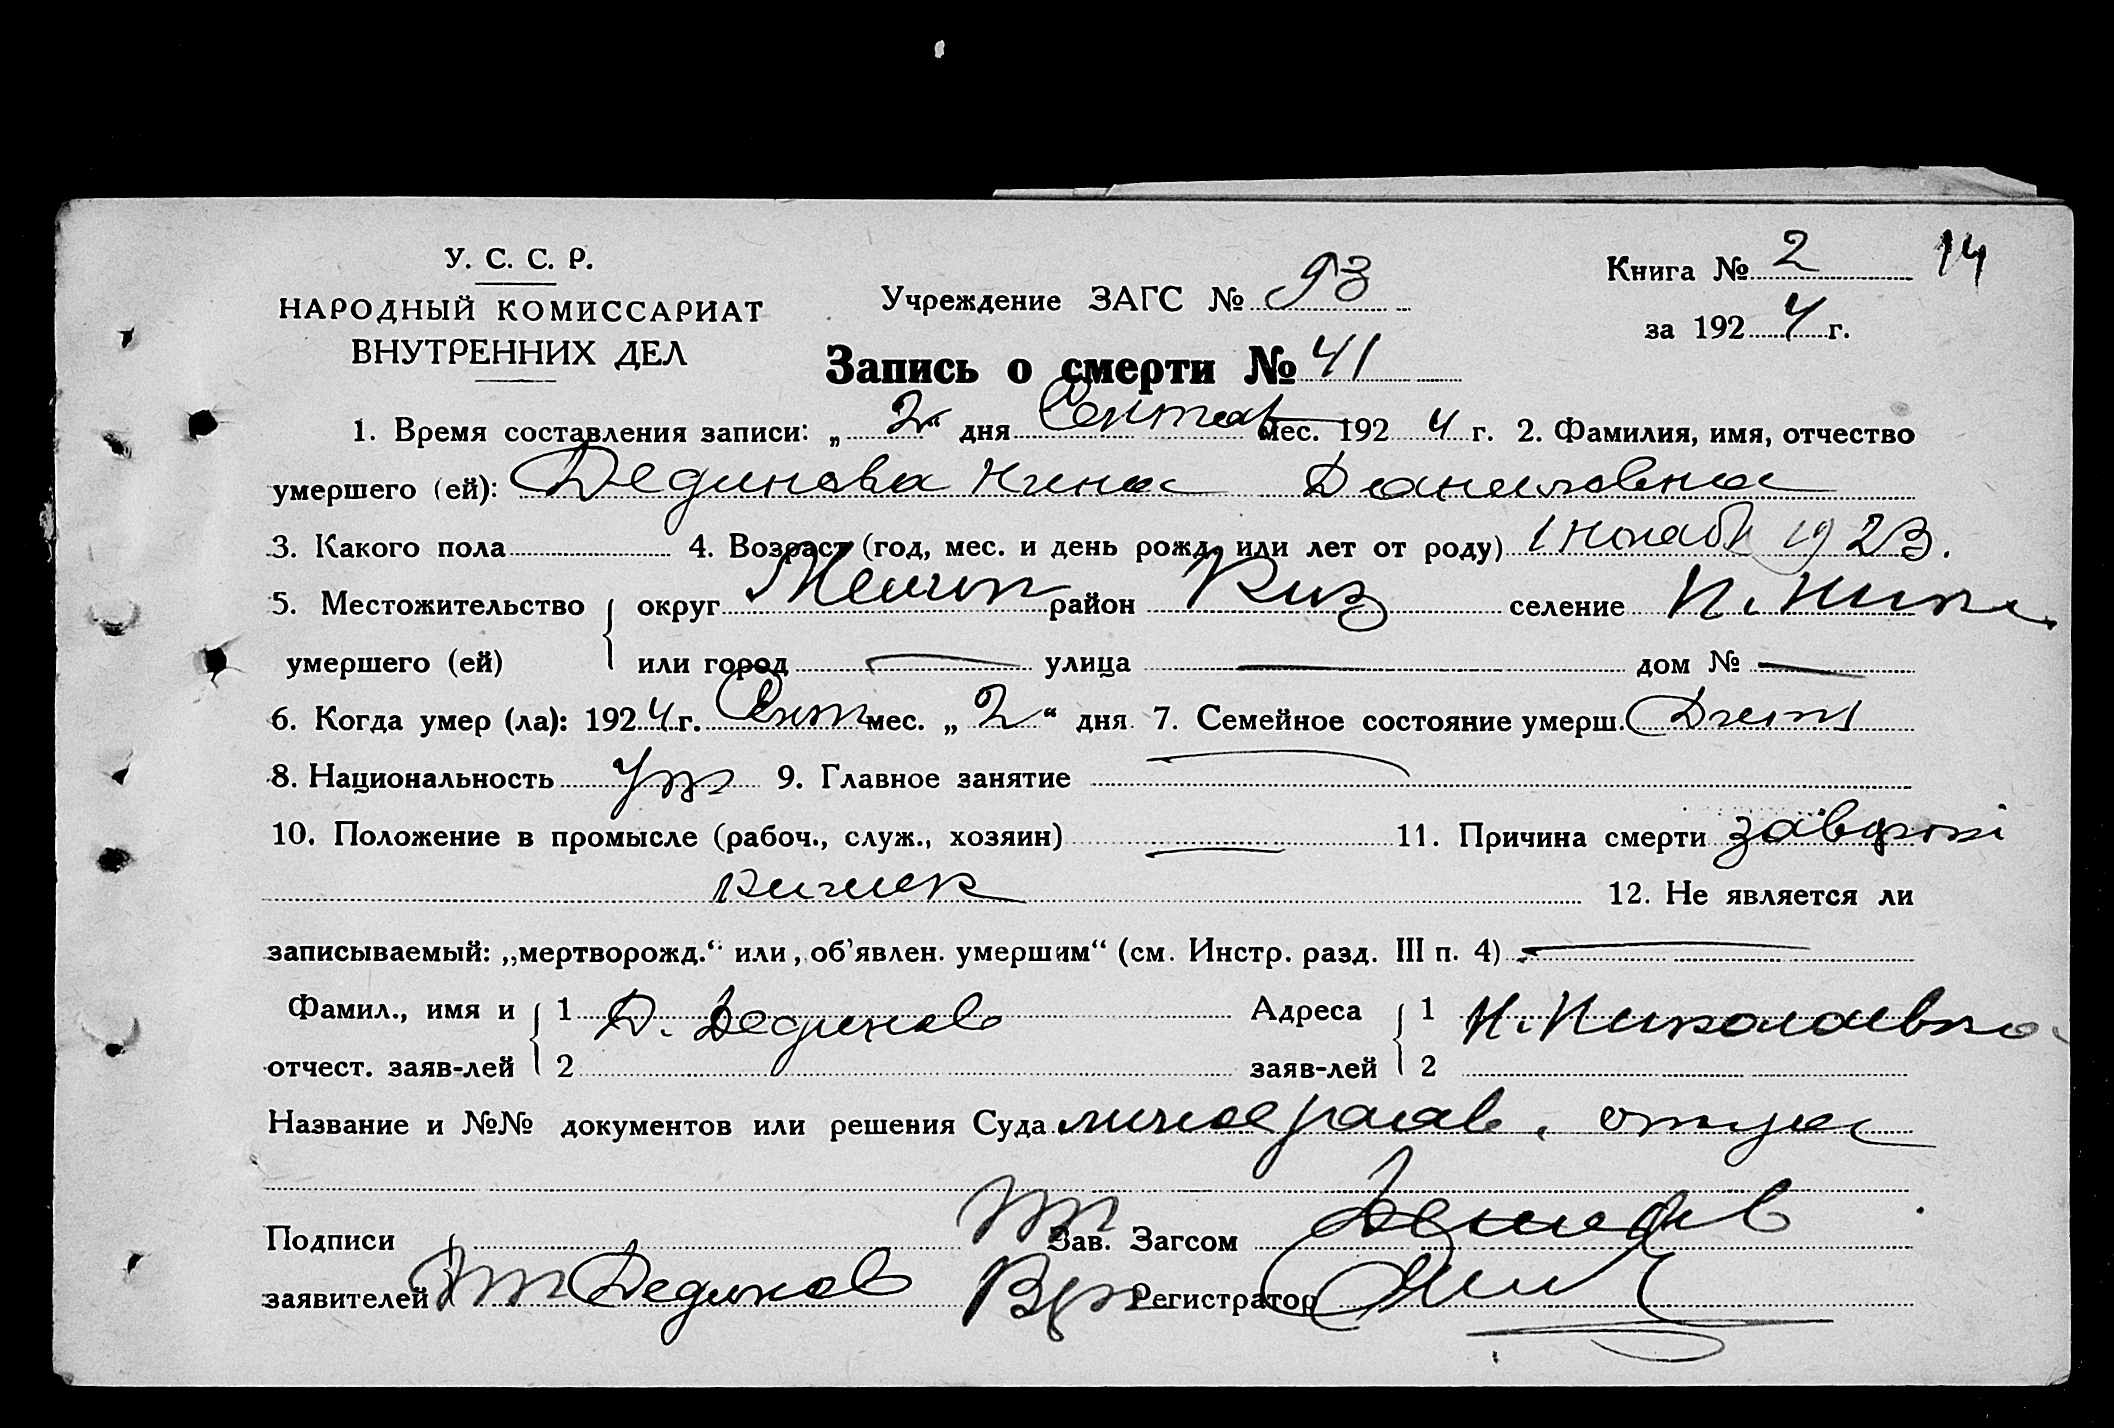 У. С. С. Р.
НАРОДНЫЙ КОМИССАРИАТ
ВНУТРЕННИХ ДЕЛ
Учреждение ЗАГС № 93
Книга № 2 14
за 1924 г.
Запись о смерти № 41
1. Время составления записи: „2“ дня Сентяб мес. 1924 г. 2. Фамилия, имя, отчество
умершего (ей): Дединова Нина Даниловна
3. Какого пола 4. Возраст (год, мес. и день рожд. или лет от роду) 1 Нояб 1923.
5. Местожительство округ Мелит район Киз селение Н. Нико
умершего (ей) или город — улица — дом № —
6. Когда умер (ла): 1924 г. Сент мес. „2“ дня 7. Семейное состояние умерш.
8. Национальность 9. Главное занятие —
10. Положение в промысле (рабоч., служ., хозяин) — 11. Причина смерти
кишек 12. Не является ли
записываемый: „мертворожд.“ или „об'явлен. умершим“ (см. Инстр. разд. III п. 4) —
Фамил., имя и 1 Д. Дединов Адреса 1 Н. Николаевка
отчест. заяв-лей 2 заяв-лей 2
Название и №№ документов или решения Суда личное заяв. отца
Подписи Зав. Загсом
заявителей Дединов Вр Регистратор